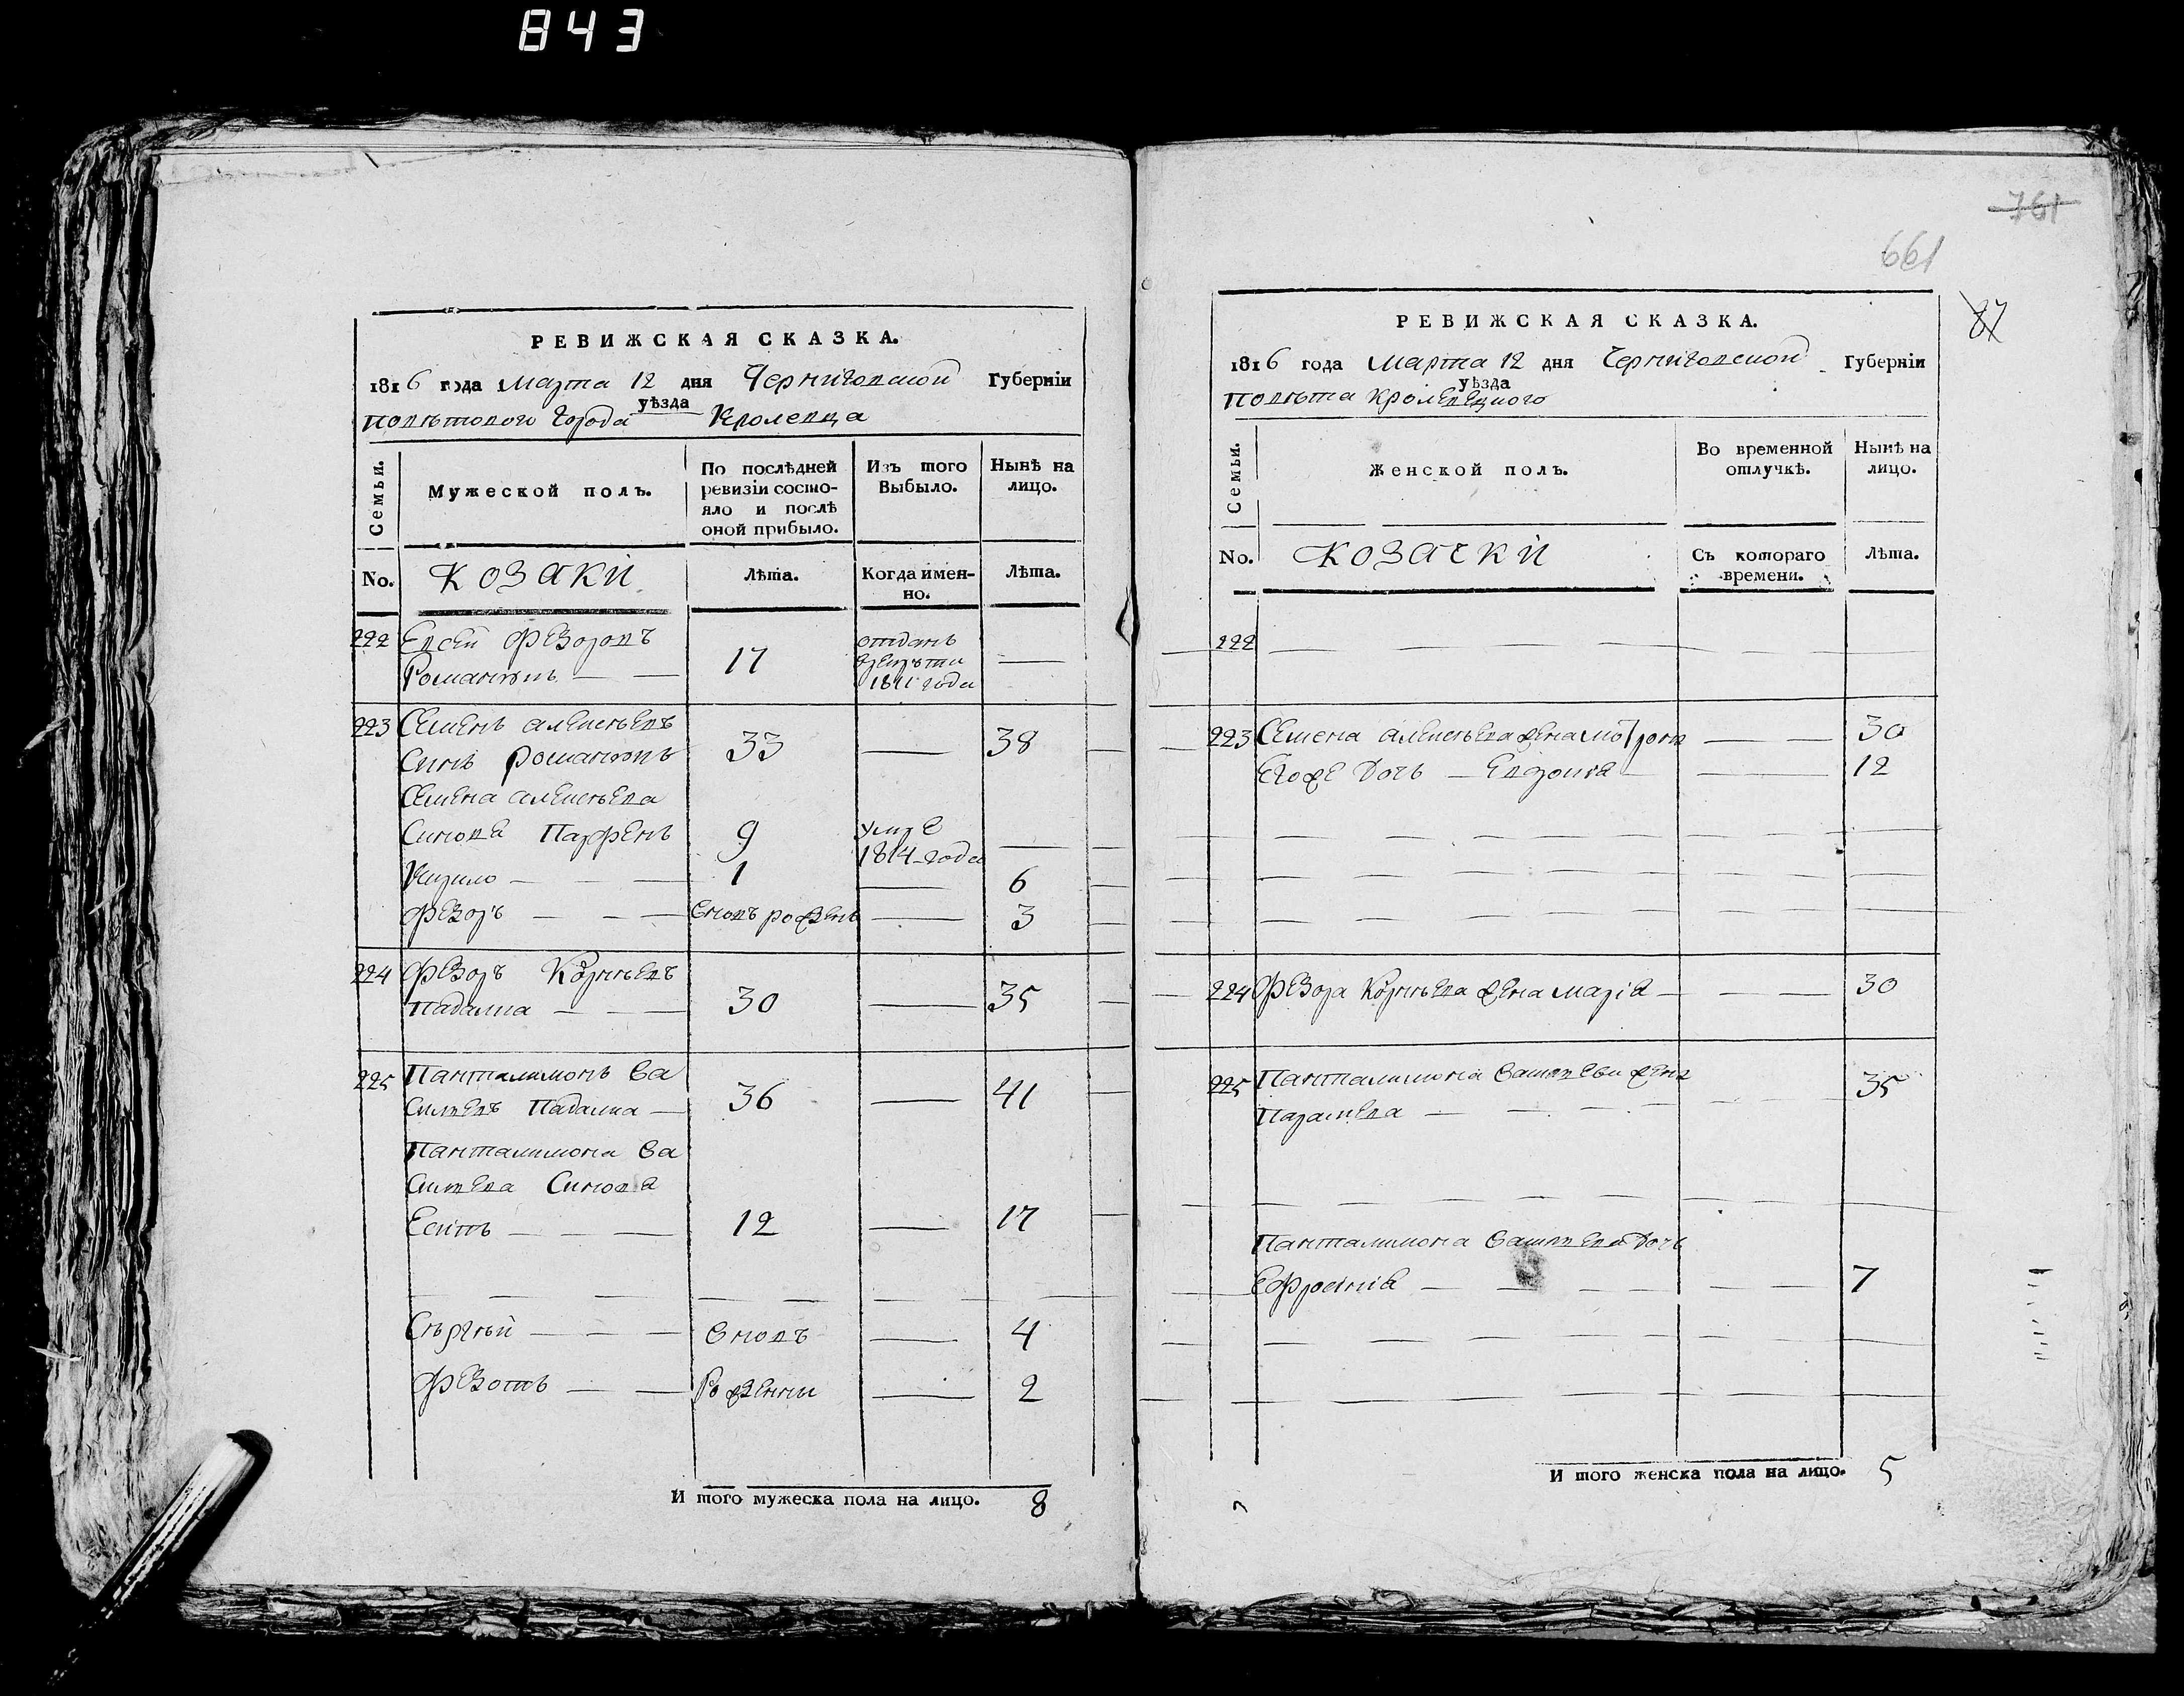 843
РЕВИЖСКАЯ СКАЗКА.
1816 года Марта 12 дня Черниговской Губерніи
уѣзда
Повѣтового Города Кролевца
Семьи. Мужеской полъ. По послѣдней ревизіи состояло и послѣ оной прибыло. Изъ того Выбыло. Нынѣ на лицо.
No. Козаки Лѣта. Когда именно. Лѣта.
222 Евсей Федоровъ отданъ
Романтовъ — — 17 —
1811 года
223 Семенъ
Синъ 33 — 38
Семена
Синове Парфенъ 9 умре
1814 года —
Кирило — — 1 — 6
Федоръ — — — вновъ рожденъ — 3
224 Федоръ Корнѣевъ
Падалка — — — 30 — 35
225 Панталимонъ Ва
силіевъ Падалка — 36 — 41
Панталимона Ва
силіева Синове
Есипъ — — — 12 — 17
Сѣргѣй — — — вновъ — 4
Федотъ — — Рожденны — 2
И того мужеска пола на лицо. 8
761
661
87
РЕВИЖСКАЯ СКАЗКА.
1816 года Марта 12 дня Черниговской Губерніи
уѣзда
Повѣта Кролевецкого
Семьи. Женской полъ. Во временной отлучкѣ. Нынѣ на лицо.
No. Козачки Съ котораго времени. Лѣта.
222
223 Семена жена Мотрона — — 30
Егоже Дочь — Евдокия — — 12
224 Федора Корнѣева жена Марія — — — 30
225 Панталимона Василіева жена 35
Параскева — — — —
Панталимона Василіева Дочь
Ефросинія — — — — 7
И того женска пола на лицо. 5